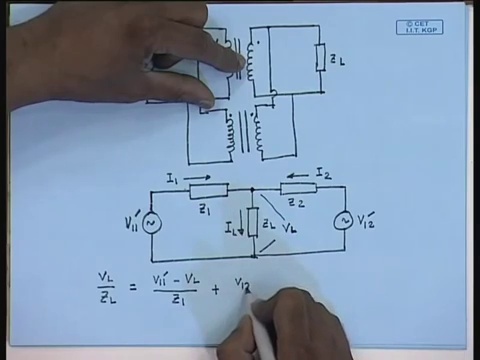 © CET
I.I.T. KGP
Z_L
I_1
I_2
Z_1
Z_2
V_11'
I_L
Z_L
V_L
V_12'
V_L/Z_L = (V_11' - V_L)/Z_1 + V_12